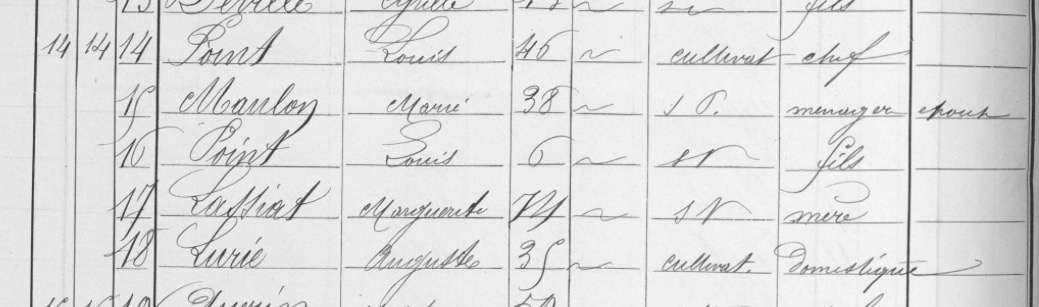 fils
14 14 14 Point Louis 46 ~ cultivat chef
15 Manlon Marie 38 ~ s P. menager epouse
16 Point Louis 6 ~ s P fils
17 Lassiat Marguerite 74 ~ s P mère
18 Lurie Auguste 35 ~ cultivat. Domestique